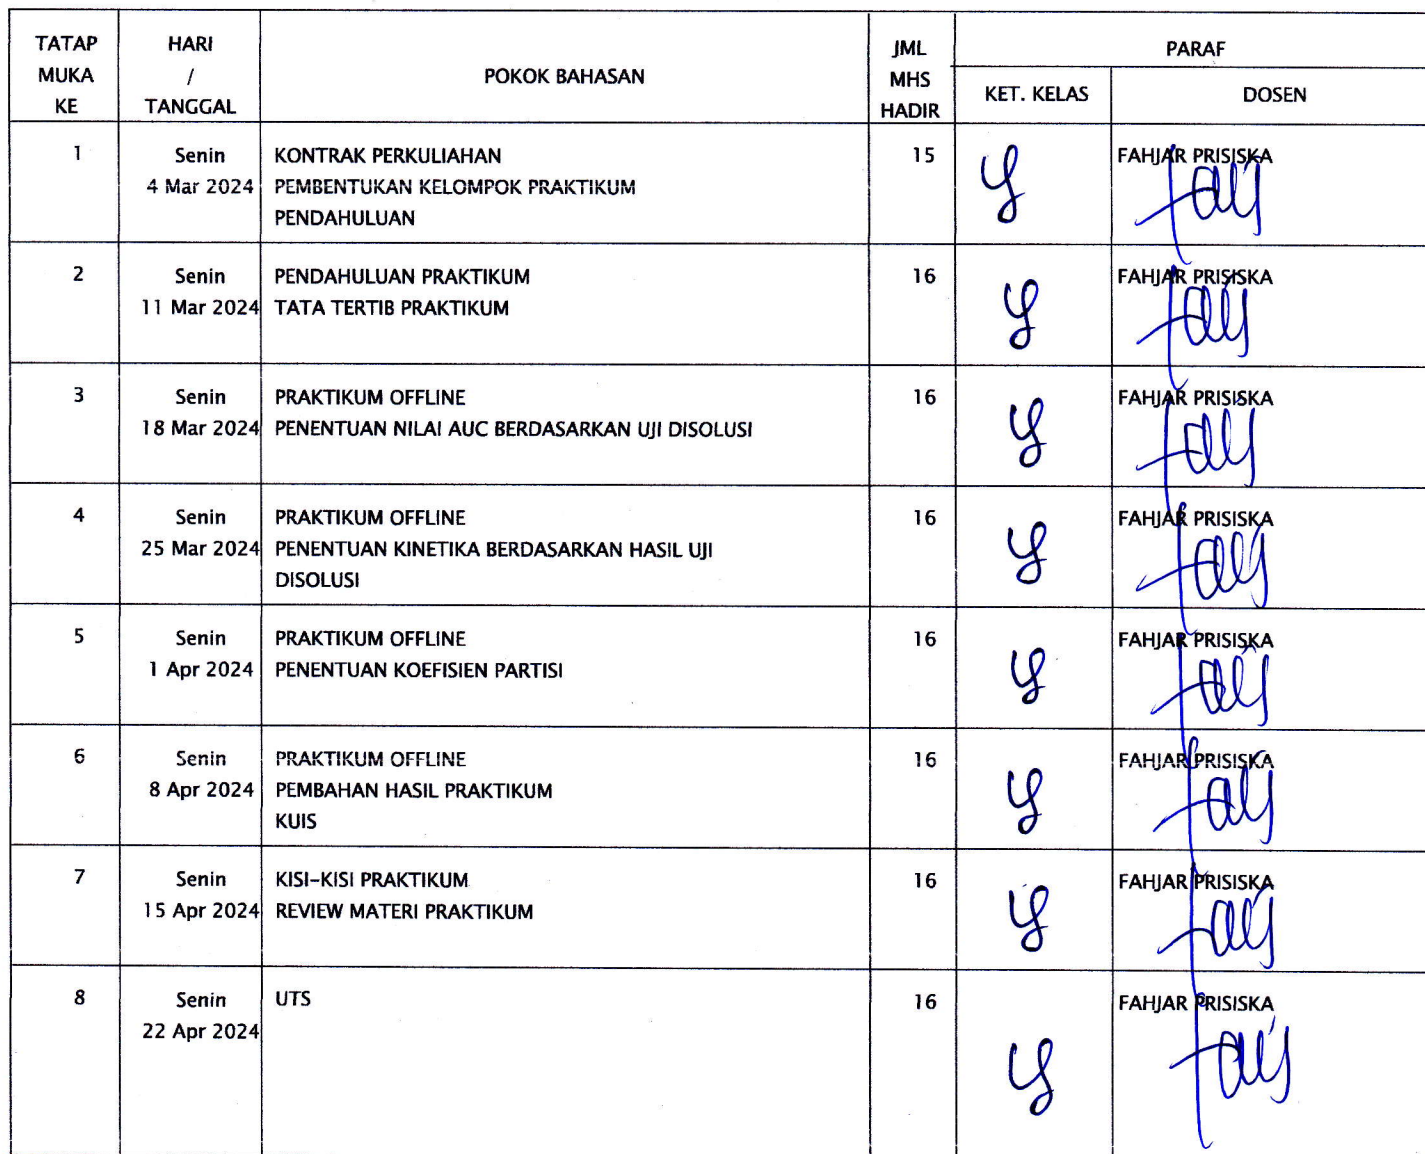 TATAP MUKA KE
HARI / TANGGAL
POKOK BAHASAN
JML MHS HADIR
PARAF
KET. KELAS
DOSEN
1
Senin
4 Mar 2024
KONTRAK PERKULIAHAN
PEMBENTUKAN KELOMPOK PRAKTIKUM
PENDAHULUAN
15
FAHJAR PRISISKA
2
Senin
11 Mar 2024
PENDAHULUAN PRAKTIKUM
TATA TERTIB PRAKTIKUM
16
FAHJAR PRISISKA
3
Senin
18 Mar 2024
PRAKTIKUM OFFLINE
PENENTUAN NILAI AUC BERDASARKAN UJI DISOLUSI
16
FAHJAR PRISISKA
4
Senin
25 Mar 2024
PRAKTIKUM OFFLINE
PENENTUAN KINETIKA BERDASARKAN HASIL UJI
DISOLUSI
16
FAHJAR PRISISKA
5
Senin
1 Apr 2024
PRAKTIKUM OFFLINE
PENENTUAN KOEFISIEN PARTISI
16
FAHJAR PRISISKA
6
Senin
8 Apr 2024
PRAKTIKUM OFFLINE
PEMBAHAN HASIL PRAKTIKUM
KUIS
16
FAHJAR PRISISKA
7
Senin
15 Apr 2024
KISI-KISI PRAKTIKUM
REVIEW MATERI PRAKTIKUM
16
FAHJAR PRISISKA
8
Senin
22 Apr 2024
UTS
16
FAHJAR PRISISKA